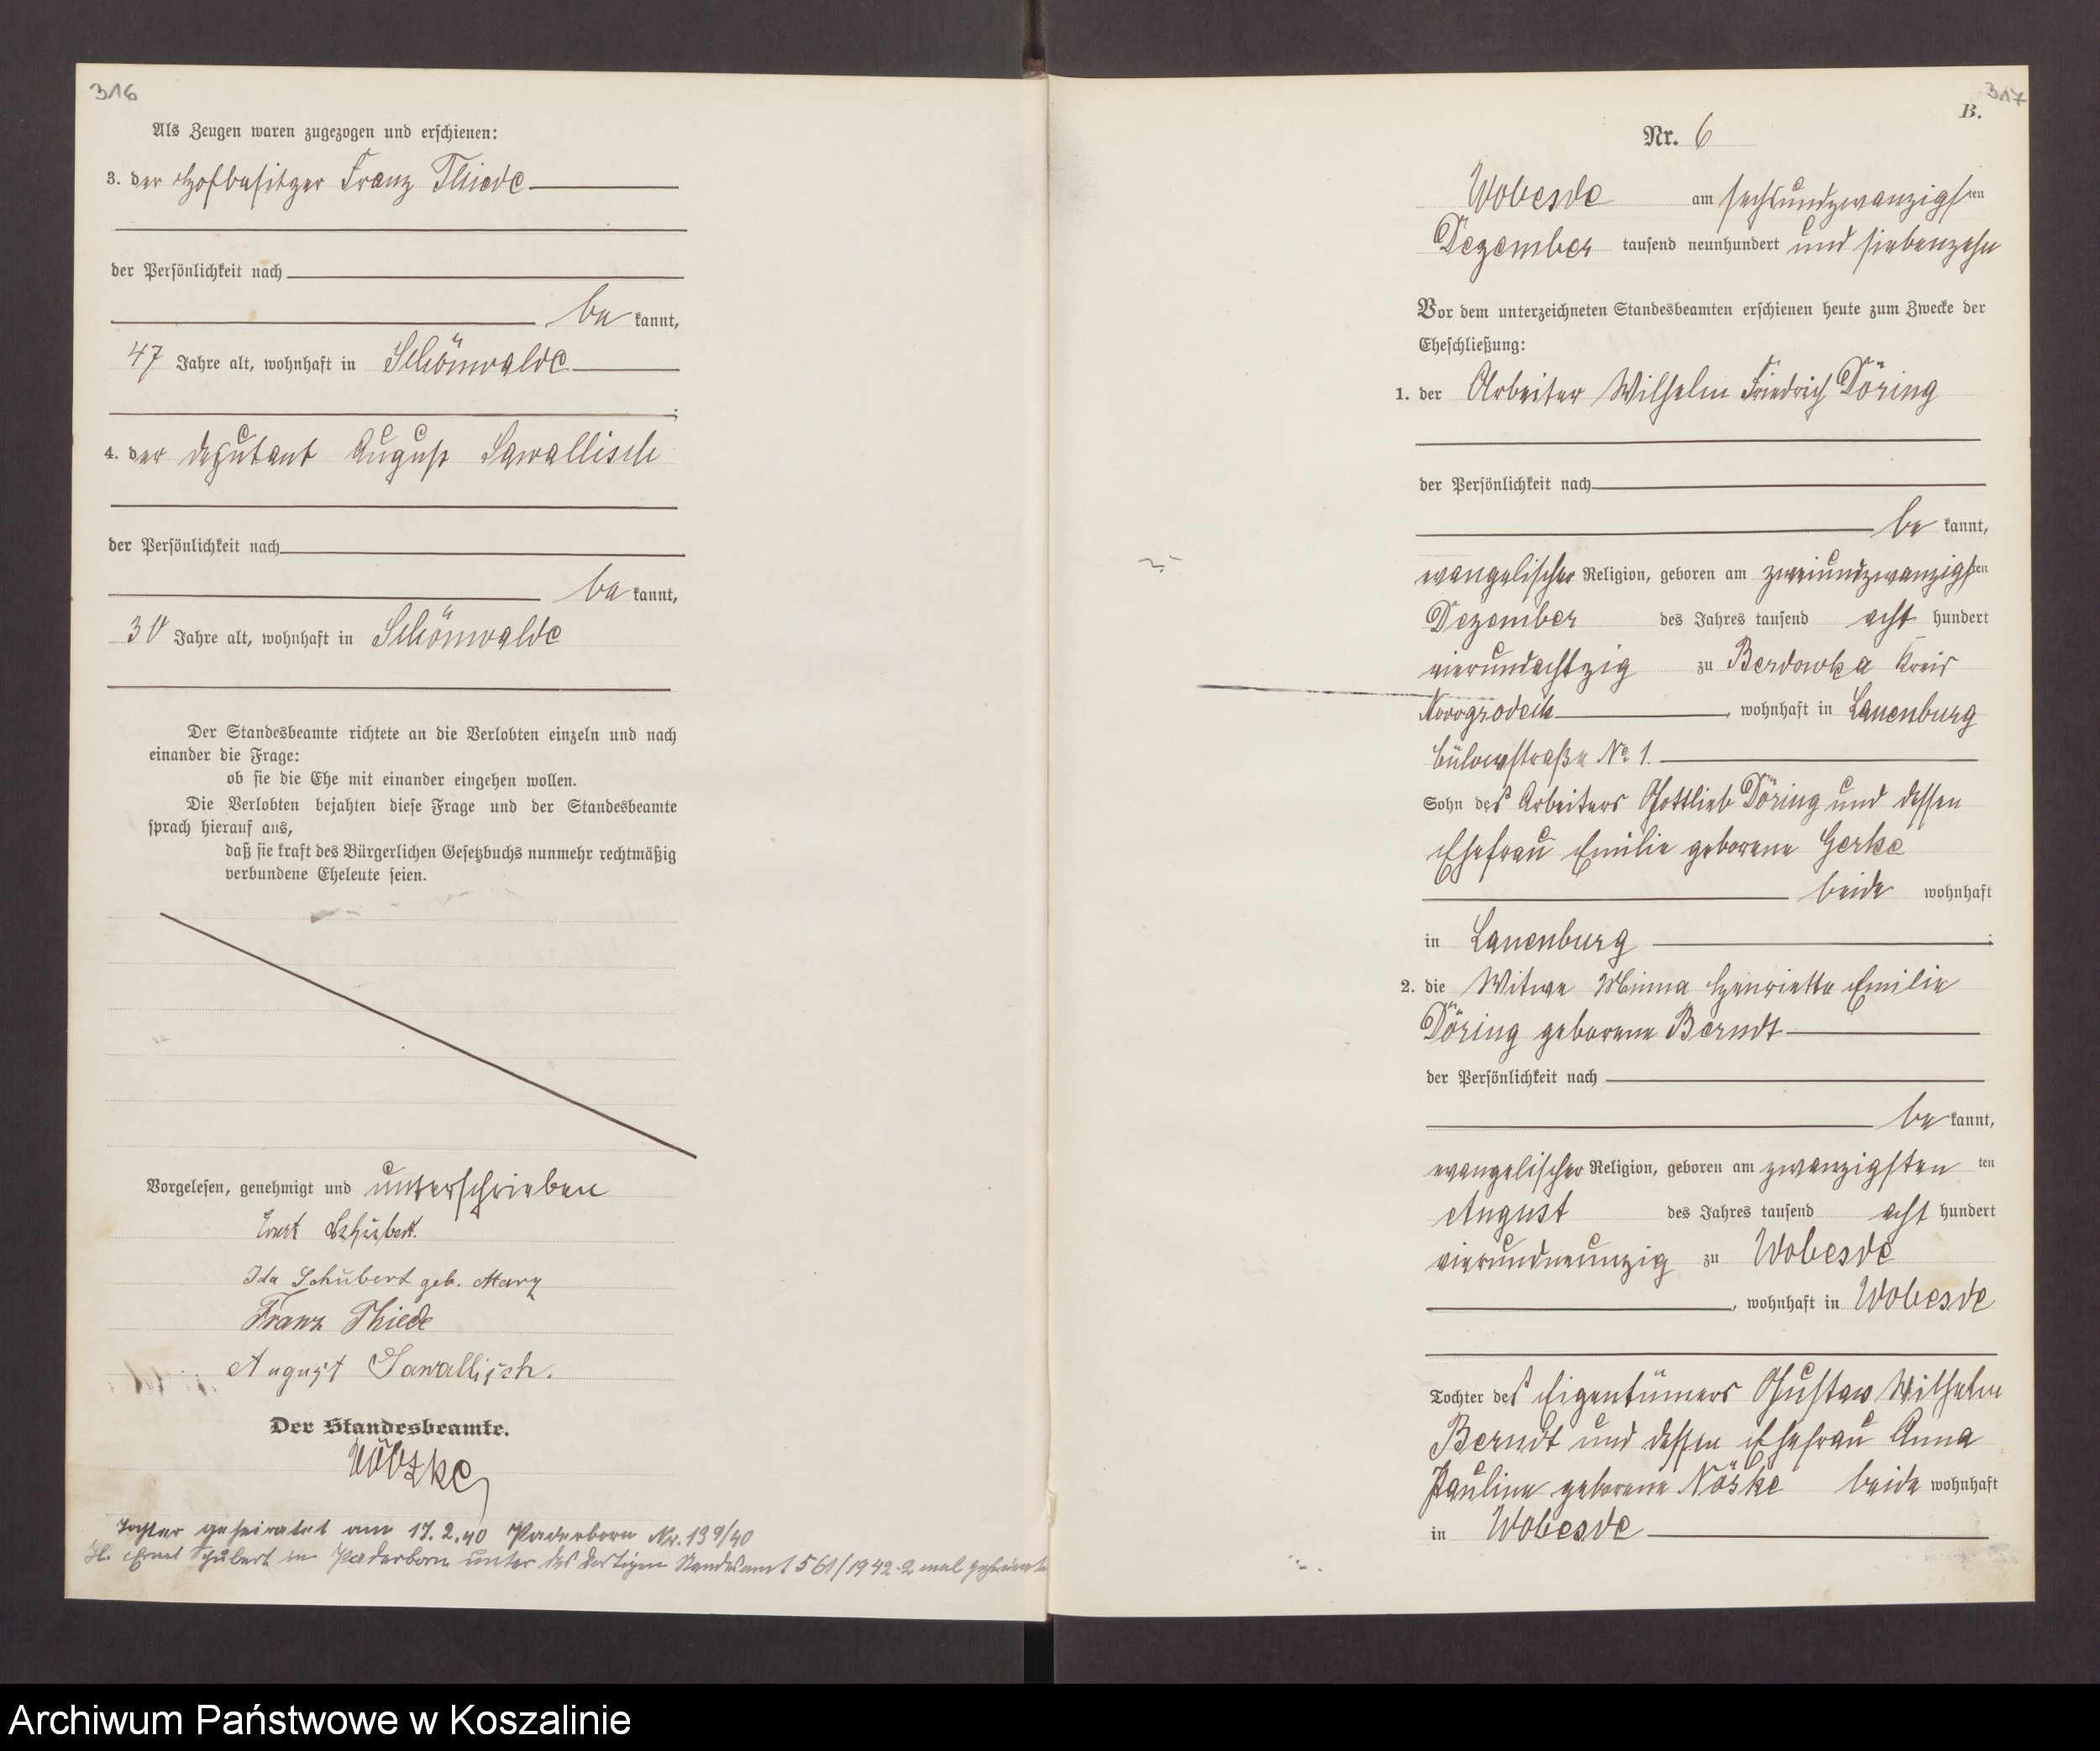 316
Als Zeugen waren zugezogen und erschienen:
3. der Hofbesitzer Franz Thiede
der Persönlichkeit nach
be kannt,
47 Jahre alt, wohnhaft in Schönwalde
4. der Deputant August Sawallisch
der Persönlichkeit nach
be kannt,
30 Jahre alt, wohnhaft in Schönwalde
Der Standesbeamte richtete an die Verlobten einzeln und nach
einander die Frage:
ob sie die Ehe mit einander eingehen wollen.
Die Verlobten bejahten diese Frage und der Standesbeamte
sprach hierauf aus,
daß sie kraft des Bürgerlichen Gesetzbuchs nunmehr rechtmäßig
verbundene Eheleute seien.
Vorgelesen, genehmigt und unterschrieben
Schubert.
Ida Schubert geb. Marz
Franz Thiede
August Sawallisch.
Der Standesbeamte.
Tochter geheiratet am 17.2.40 Paderborn Nr. 139/40
Ernst Schubert in Paderborn unter des dortigen Standesamt 561/1942 2 mal geheiratet
317
B.
Nr. 6
Wobesde am sechsundzwanzigsten
Dezember tausend neunhundert und siebenzehn
Vor dem unterzeichneten Standesbeamten erschienen heute zum Zwecke der
Eheschließung:
1. der Arbeiter Wilhelm Friedrich Döring
der Persönlichkeit nach
be kannt,
evangelischer Religion, geboren am zweiundzwanzigsten
Dezember des Jahres tausend acht hundert
vierundachtzig zu Berdowka Kreis
Novogrodek, wohnhaft in Lauenburg
Bülowstraße No 1.
Sohn des Arbeiters Gottlieb Döring und dessen
Ehefrau Emilie geborene Gerke
beide wohnhaft
in Lauenburg;
2. die Witwe Minna Henriette Emilie
Döring geborene Berndt
der Persönlichkeit nach
be kannt,
evangelischer Religion, geboren am zwanzigsten ten
August des Jahres tausend acht hundert
vierundneunzig zu Wobesde
, wohnhaft in Wobesde
Tochter des Eigentümers Gustav Wilhelm
Berndt und dessen Ehefrau Anna
Pauline geborene Nöske beide wohnhaft
in Wobesde
Archiwum Państwowe w Koszalinie